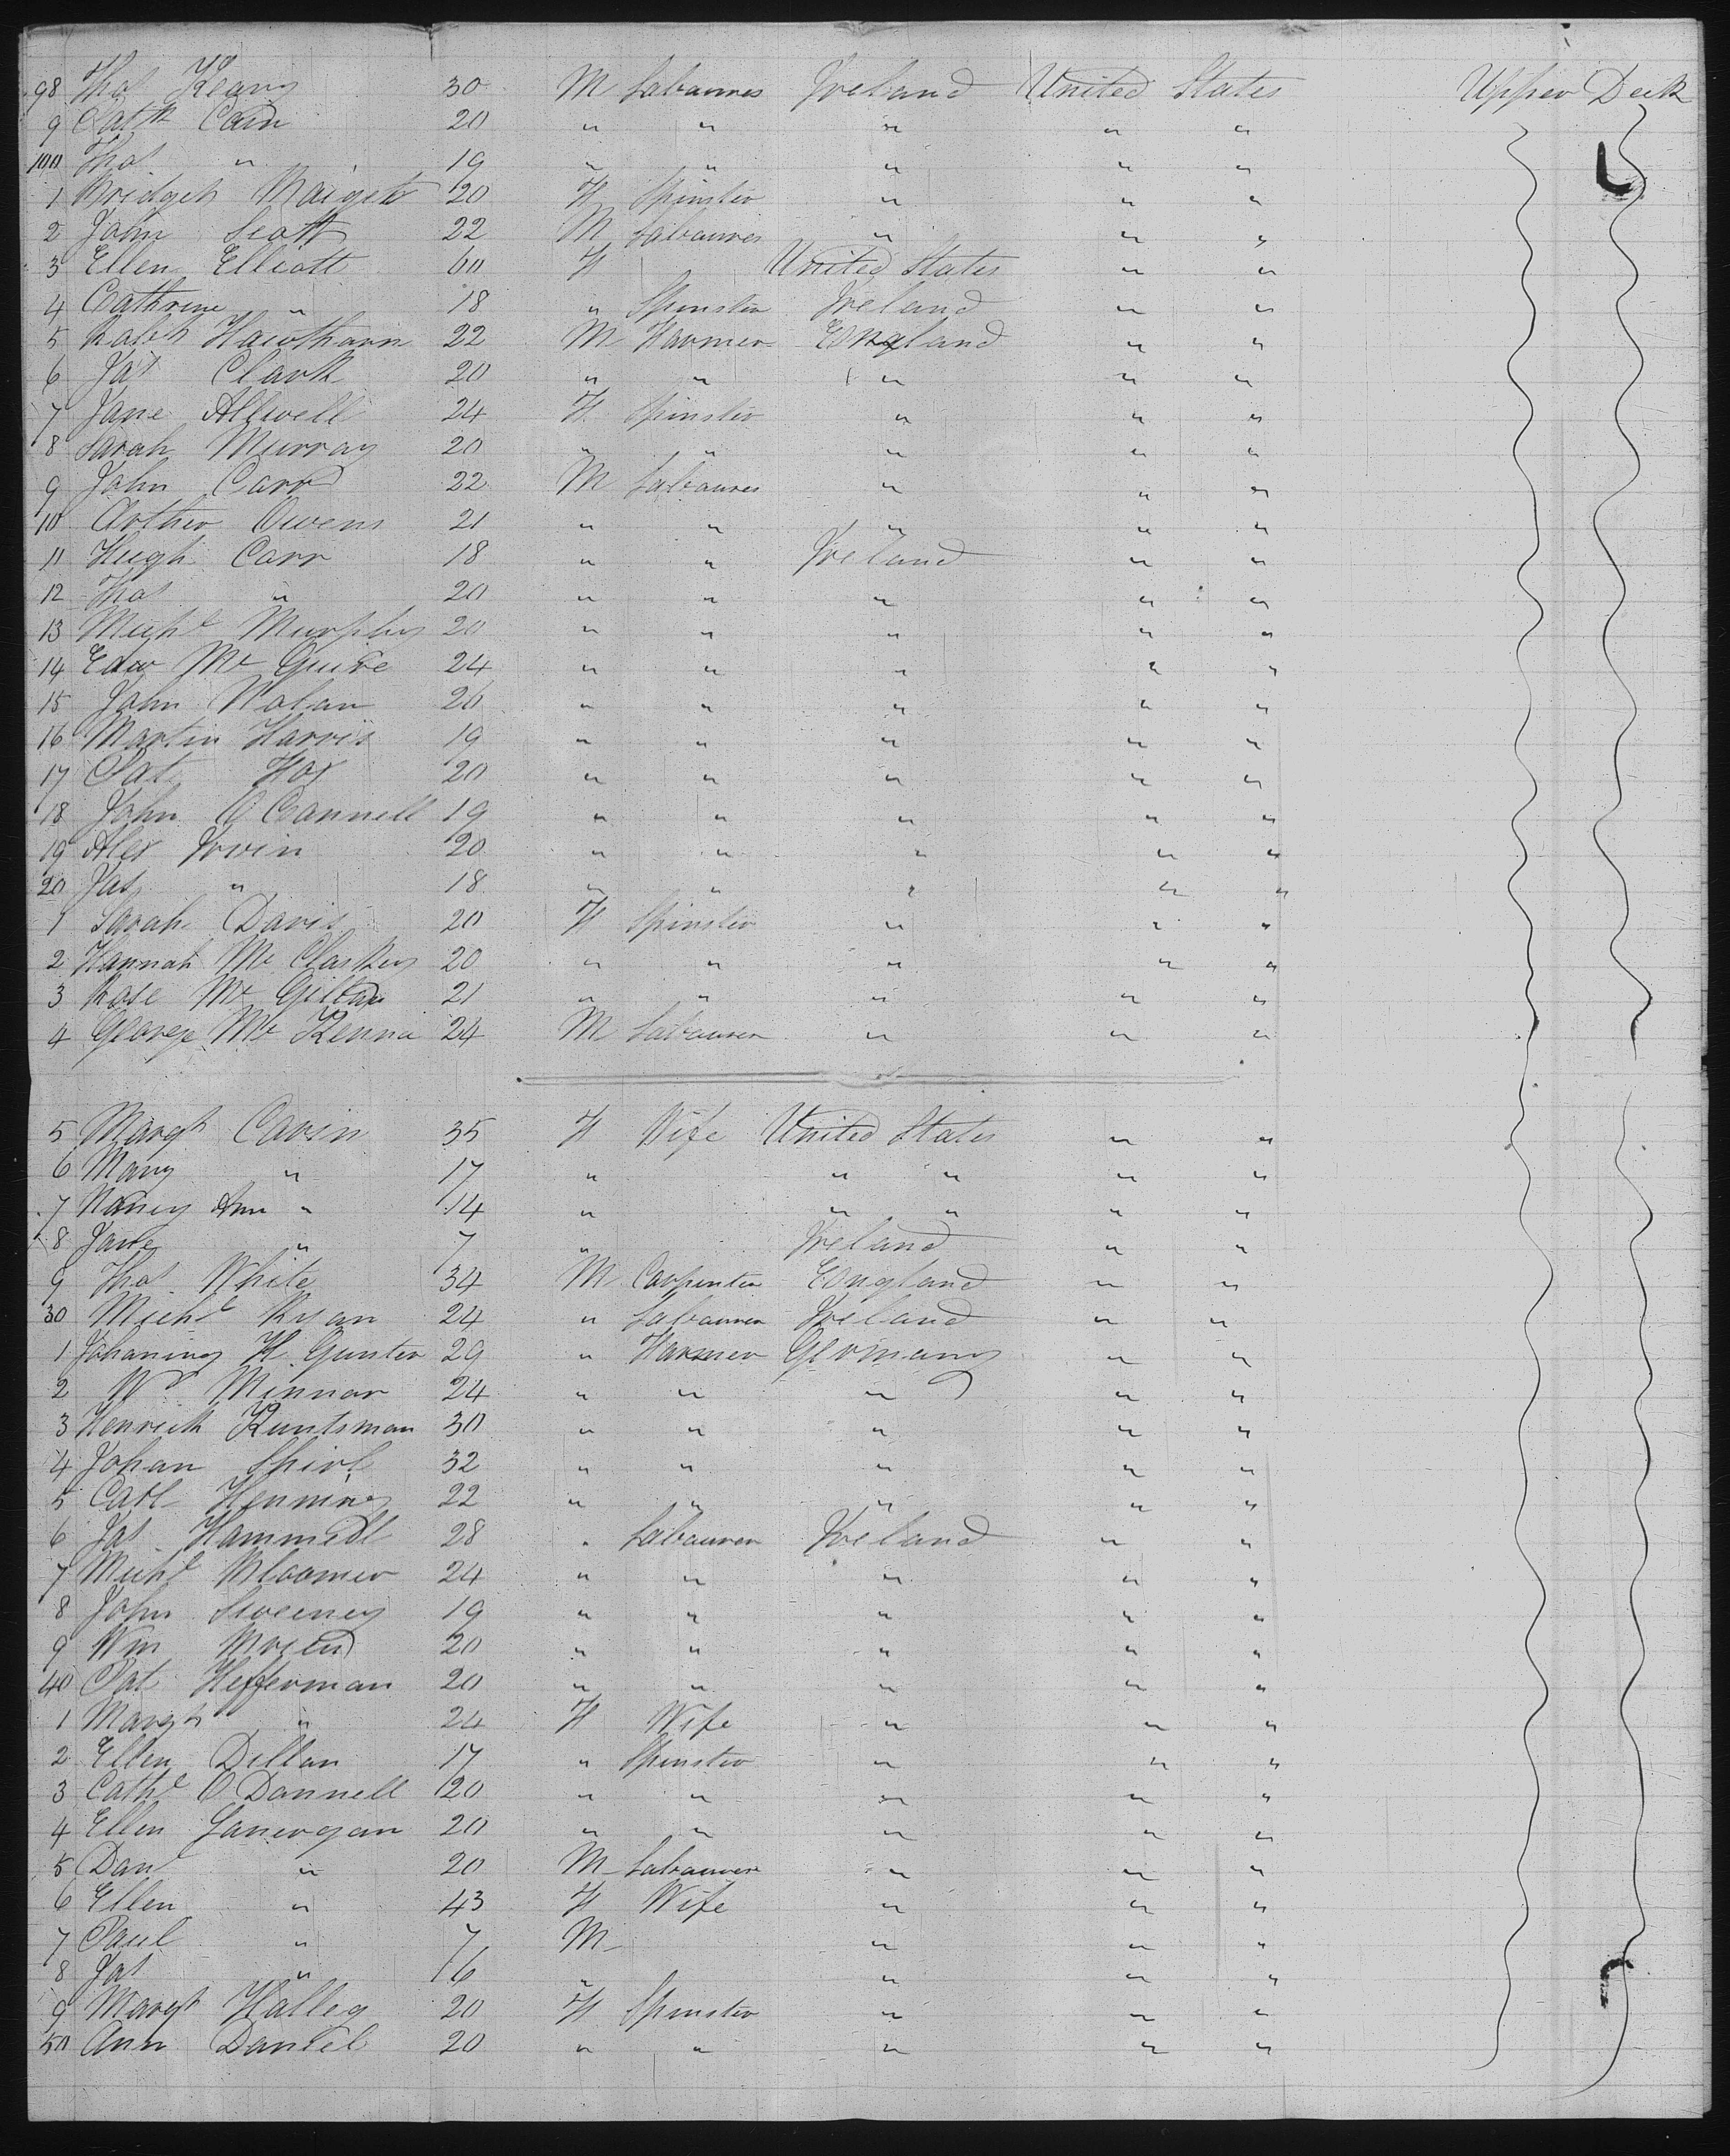 98 Thos Keary 30 M Labourer Ireland United States Upper Deck
9 Patk Cain 20 " " " " "
100 Thos " 19 " " " " "
1 Bridget 20 F Spinster " " "
2 John Scott 22 M Labourer " " "
3 Ellen Elliott 60 F United States " "
4 Cathrine " 18 " Spinster Ireland " "
5 Robt Hawthorn 22 M Farmer England " "
6 Jas Clark 20 " " " " "
7 Jane Allwell 24 F Spinster " " "
8 Sarah Murray 20 " " " " "
9 John Carr 22 M Labourer " " "
10 Arther Owens 21 " " " " "
11 Hugh Carr 18 " " Ireland " "
12 Thos " 20 " " " " "
13 Michl Murphy 20 " " " " "
14 Edw Mc Guire 24 " " " " "
15 John Nolan 26 " " " " "
16 Martin Harris 19 " " " " "
17 Pat Fox 20 " " " " "
18 John O Connell 19 " " " " "
19 Alex Irvin 20 " " " " "
20 Jas " 18 " " " " "
1 Sarah Davis 20 F Spinster " " "
2 Hannah Mc Claskey 20 " " " " "
3 Rose Mc 21 " " " " "
4 George Mc Kenna 24 M Labourer " " "
5 Margt Cavin 35 F Wife United States " "
6 Mary " 17 " " " " "
7 Nancy Ann " 14 " " " " "
8 Jane " 7 " Ireland " "
9 Thos White 34 M Carpenter England " "
30 Michl Ryan 24 " Labourer Ireland " "
1 H Gunter 29 " Farmer Germany " "
2 Wm Minnar 24 " " " " "
3 Henrick Kuntsman 30 " " " " "
4 Johan 32 " " " " "
5 Carl Henning 22 " " " " "
6 Jas Hammell 28 " Labourer Ireland " "
7 Michl Bloomer 24 " " " " "
8 John Sweeney 19 " " " " "
9 Wm 20 " " " " "
40 Pat Heffernan 20 " " " " "
1 Margt " 24 F Wife " " "
2 Ellen Dillon 17 " Spinster " " "
3 Cathe O Donnell 20 " " " " "
4 Ellen Lanergan 20 " " " " "
5 Danl " 20 M Labourer " " "
6 Ellen " 43 F Wife " " "
7 Paul " 7 M " " "
8 Jas " 6 " " " "
9 Margt Halley 20 F Spinster " " "
50 Ann Daniel 20 " " " " "